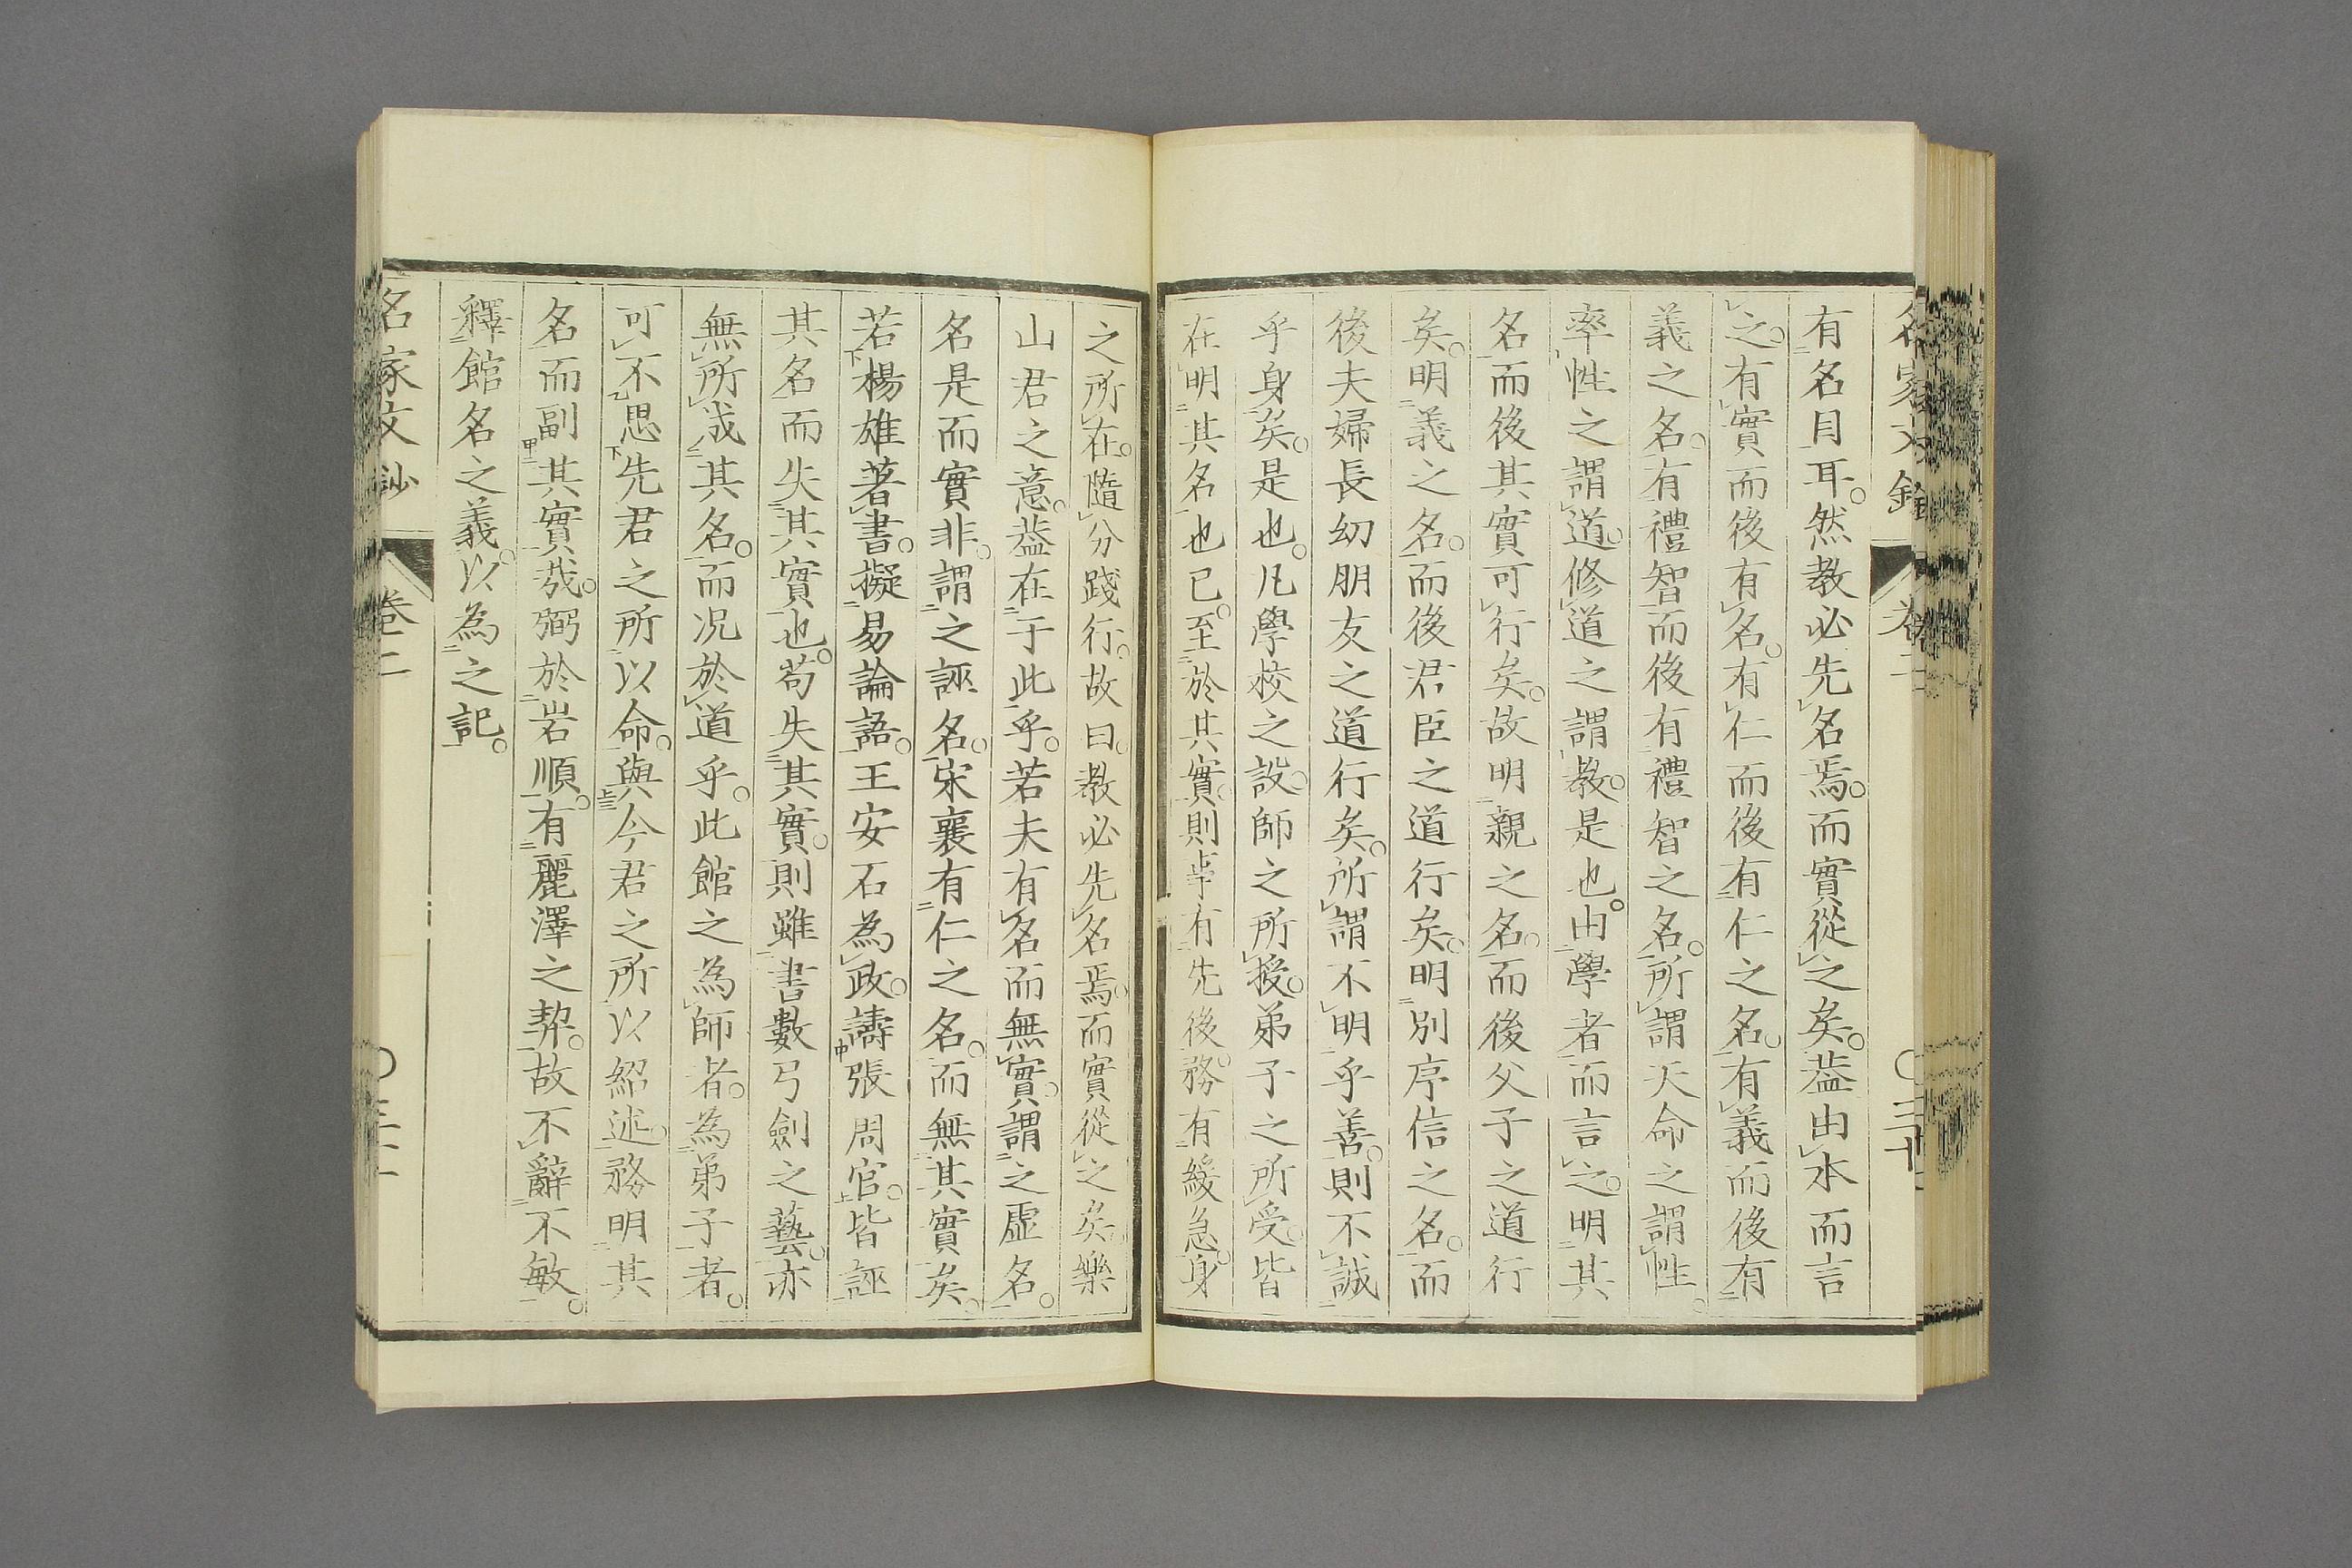 有名目耳。然教必先名焉。而實從之矣。蓋由本而言
之。有實而後有名。有仁而後有仁之名。有義而後有
義之名。有禮智而後有禮智之名。所謂天命之謂性。
率性之謂道。修道之謂教是也。由學者而言之。明其
名而後其實可行矣。故明親之名。而後父子之道行
矣。明義之名。而後君臣之道行矣。明別序信之名。而
後夫婦長幼朋友之道行矣。所謂不明乎善。則不誠
乎身矣。是也。凡學校之設。師之所授。弟子之所受。皆
在明其名也已。至於其實。則事有先後。務有緩急。身
之所在。隨分踐行。故曰。教必先名焉。而實從之矣。樂
山君之意。蓋在于此乎。若夫有名而無實。謂之虛名。
名是而實非。謂之誣名。宋襄有仁之名。而無其實矣。
若楊雄著書。擬易論語。王安石為政。譸張周官。皆誣
其名而失其實也。苟失其實。則雖書數弓劍之藝。亦
無所成其名。而況於道乎。此館之為師者。為弟子者。
可不思先君之所以命。與今君之所以紹述。務明其
名而副其實哉。弼於岩順。有麗澤之契。故不辭不敏。
釋館名之義。以為之記。
名家文鈔 卷二